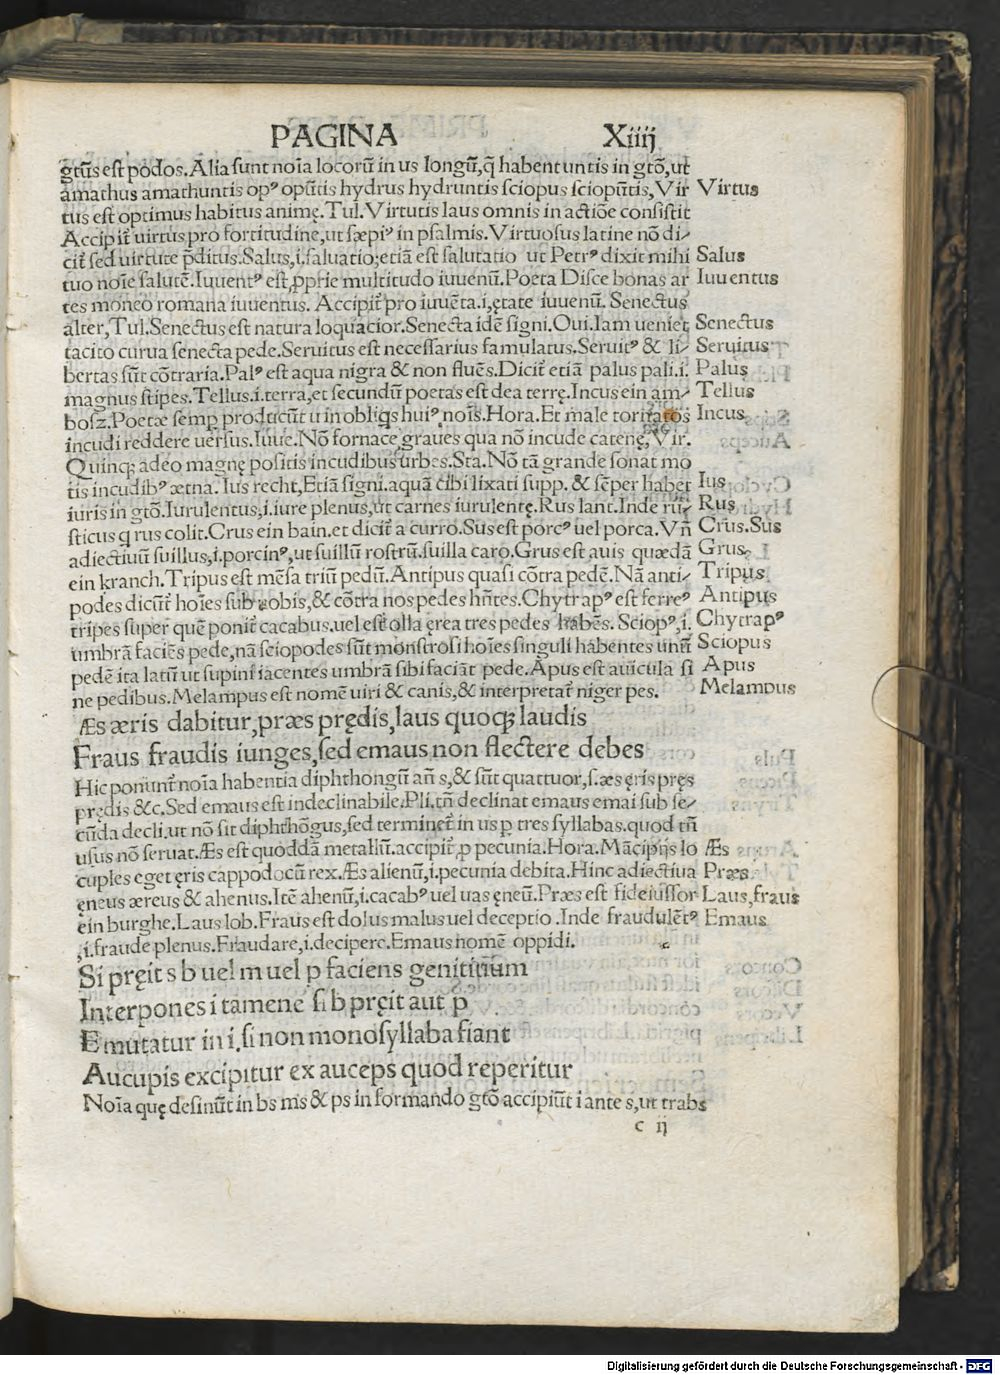 PAGINA Xiiij
gtūs est podos. Alia sunt noīa locorū in us longū, q̄ habent untis in gtō, ut
amathus amathuntis opꝰ opūtis hydrus hydruntis sciopus sciopūtis, Vir Virtus
tus est optimus habitus animę. Tul. Virtutis laus omnis in actiōe consistit
Accipit̄ uirtus pro fortitudine, ut sæpiꝰ in psalmis. Virtuosus latine nō di⸗
cit̄ sed uirtute p̄ditus. Salus, i. saluatio: etiā est salutatio ut Petrꝰ dixit mihi Salus
tuo noīe salutē. Iuuentꝰ est, pprie multitudo iuuenū. Poeta Disce bonas ar Iuuentus
tes moneo romana iuuentus. Accipit̄ pro iuuēta. i, ętate iuuenū. Senectus
alter, Tul. Senectus est natura loquacior. Senecta idē signi. Oui. Iam ueniet Senectus
tacito curua senecta pede. Seruitus est necessarius famulatus. Seruitꝰ & li⸗ Seruitus
bertas sūt cōtraria. Palꝰ est aqua nigra & non fluēs. Dicit̄ etiā palus pali. i. Palus
magnus stipes. Tellus. i. terra, et secundū poetas est dea terrę. Incus ein am⸗ Tellus
bosz. Poetæ semp producūt u in obliqs huiꝰ noīs. Hora. Et male tornatos Incus
incudi reddere uersus. Iuue. Nō fornace graues qua nō incude catenę, Vir.
Quinqꝫ adeo magnę positis incudibus urbes. Sta. Nō tā grande sonat mo
tis incudibꝰ ætna. Ius recht, Etiā signi. aquā cibi lixati supp. & sēper habet Ius
iuris in gtō. Iurulentus, i. iure plenus, ut carnes iurulentę. Rus lant. Inde ru⸗ Rus
sticus q rus colit. Crus ein bain. et dicit̄ a curro. Sus est porcꝰ uel porca. Vn̄ Crus. Sus
adiectiuū suillus, i. porcinꝰ, ut suillū rostrū. suilla caro. Grus est auis quædā Grus
ein kranch. Tripus est mēsa triū pedū. Antipus quasi cōtra pedē. Nā anti⸗ Tripus
podes dicūt̄ hoīes sub nobis, & cōtra nos pedes hn̄tes. Chytrapꝰ est ferreꝰ Antipus
tripes super quē ponit̄ cacabus. uel est olla ęrea tres pedes habēs. Sciopꝰ, i. Chytrapꝰ
umbrā faciēs pede, nā sciopodes sūt monstrosi hoīes singuli habentes unū Sciopus
pedē ita latū ut supini iacentes umbrā sibi faciāt pede. Apus est auicula si Apus
ne pedibus. Melampus est nomē uiri & canis, & interpretat̄ niger pes. Melampus
Æs æris dabitur, præs prędis, laus quoqꝫ laudis
Fraus fraudis iunges, sed emaus non flectere debes
Hic ponunt̄ noīa habentia diphthongū an̄ s, & sūt quattuor, s. æs ęris pręs
prędis &c. Sed emaus est indeclinabile. Pli. tn̄ declinat emaus emai sub se⸗
cūda decli. ut nō sit diphthōgus, sed terminet̄ in us p tres syllabas. quod tn̄
usus nō seruat. Æs est quoddā metallū. accipit̄, p pecunia. Hora. Mācipijs lo Æs
cuples eget ęris cappodocū rex. Æs alienū, i. pecunia debita. Hinc adiectiua Præs
ęneus æreus & ahenus. Itē ahenū, i. cacabꝰ uel uas ęneū. Præs est fideiussor Laus, fraus
ein burghe. Laus lob. Fraus est dolus malus uel deceptio. Inde fraudulētꝰ Emaus
, i. fraude plenus. Fraudare, i. decipere. Emaus nomē oppidi.
Si pręit s b uel m uel p faciens genitiuum
Interpones i tamene si b pręit aut p
E mutatur in i. si non monosyllaba fiant
Aucupis excipitur ex auceps quod reperitur
Noīa quę desinūt in bs ms & ps in formando gtō accipiūt i ante s, ut trabs
c ij
Digitalisierung gefördert durch die Deutsche Forschungsgemeinschaft - DFG